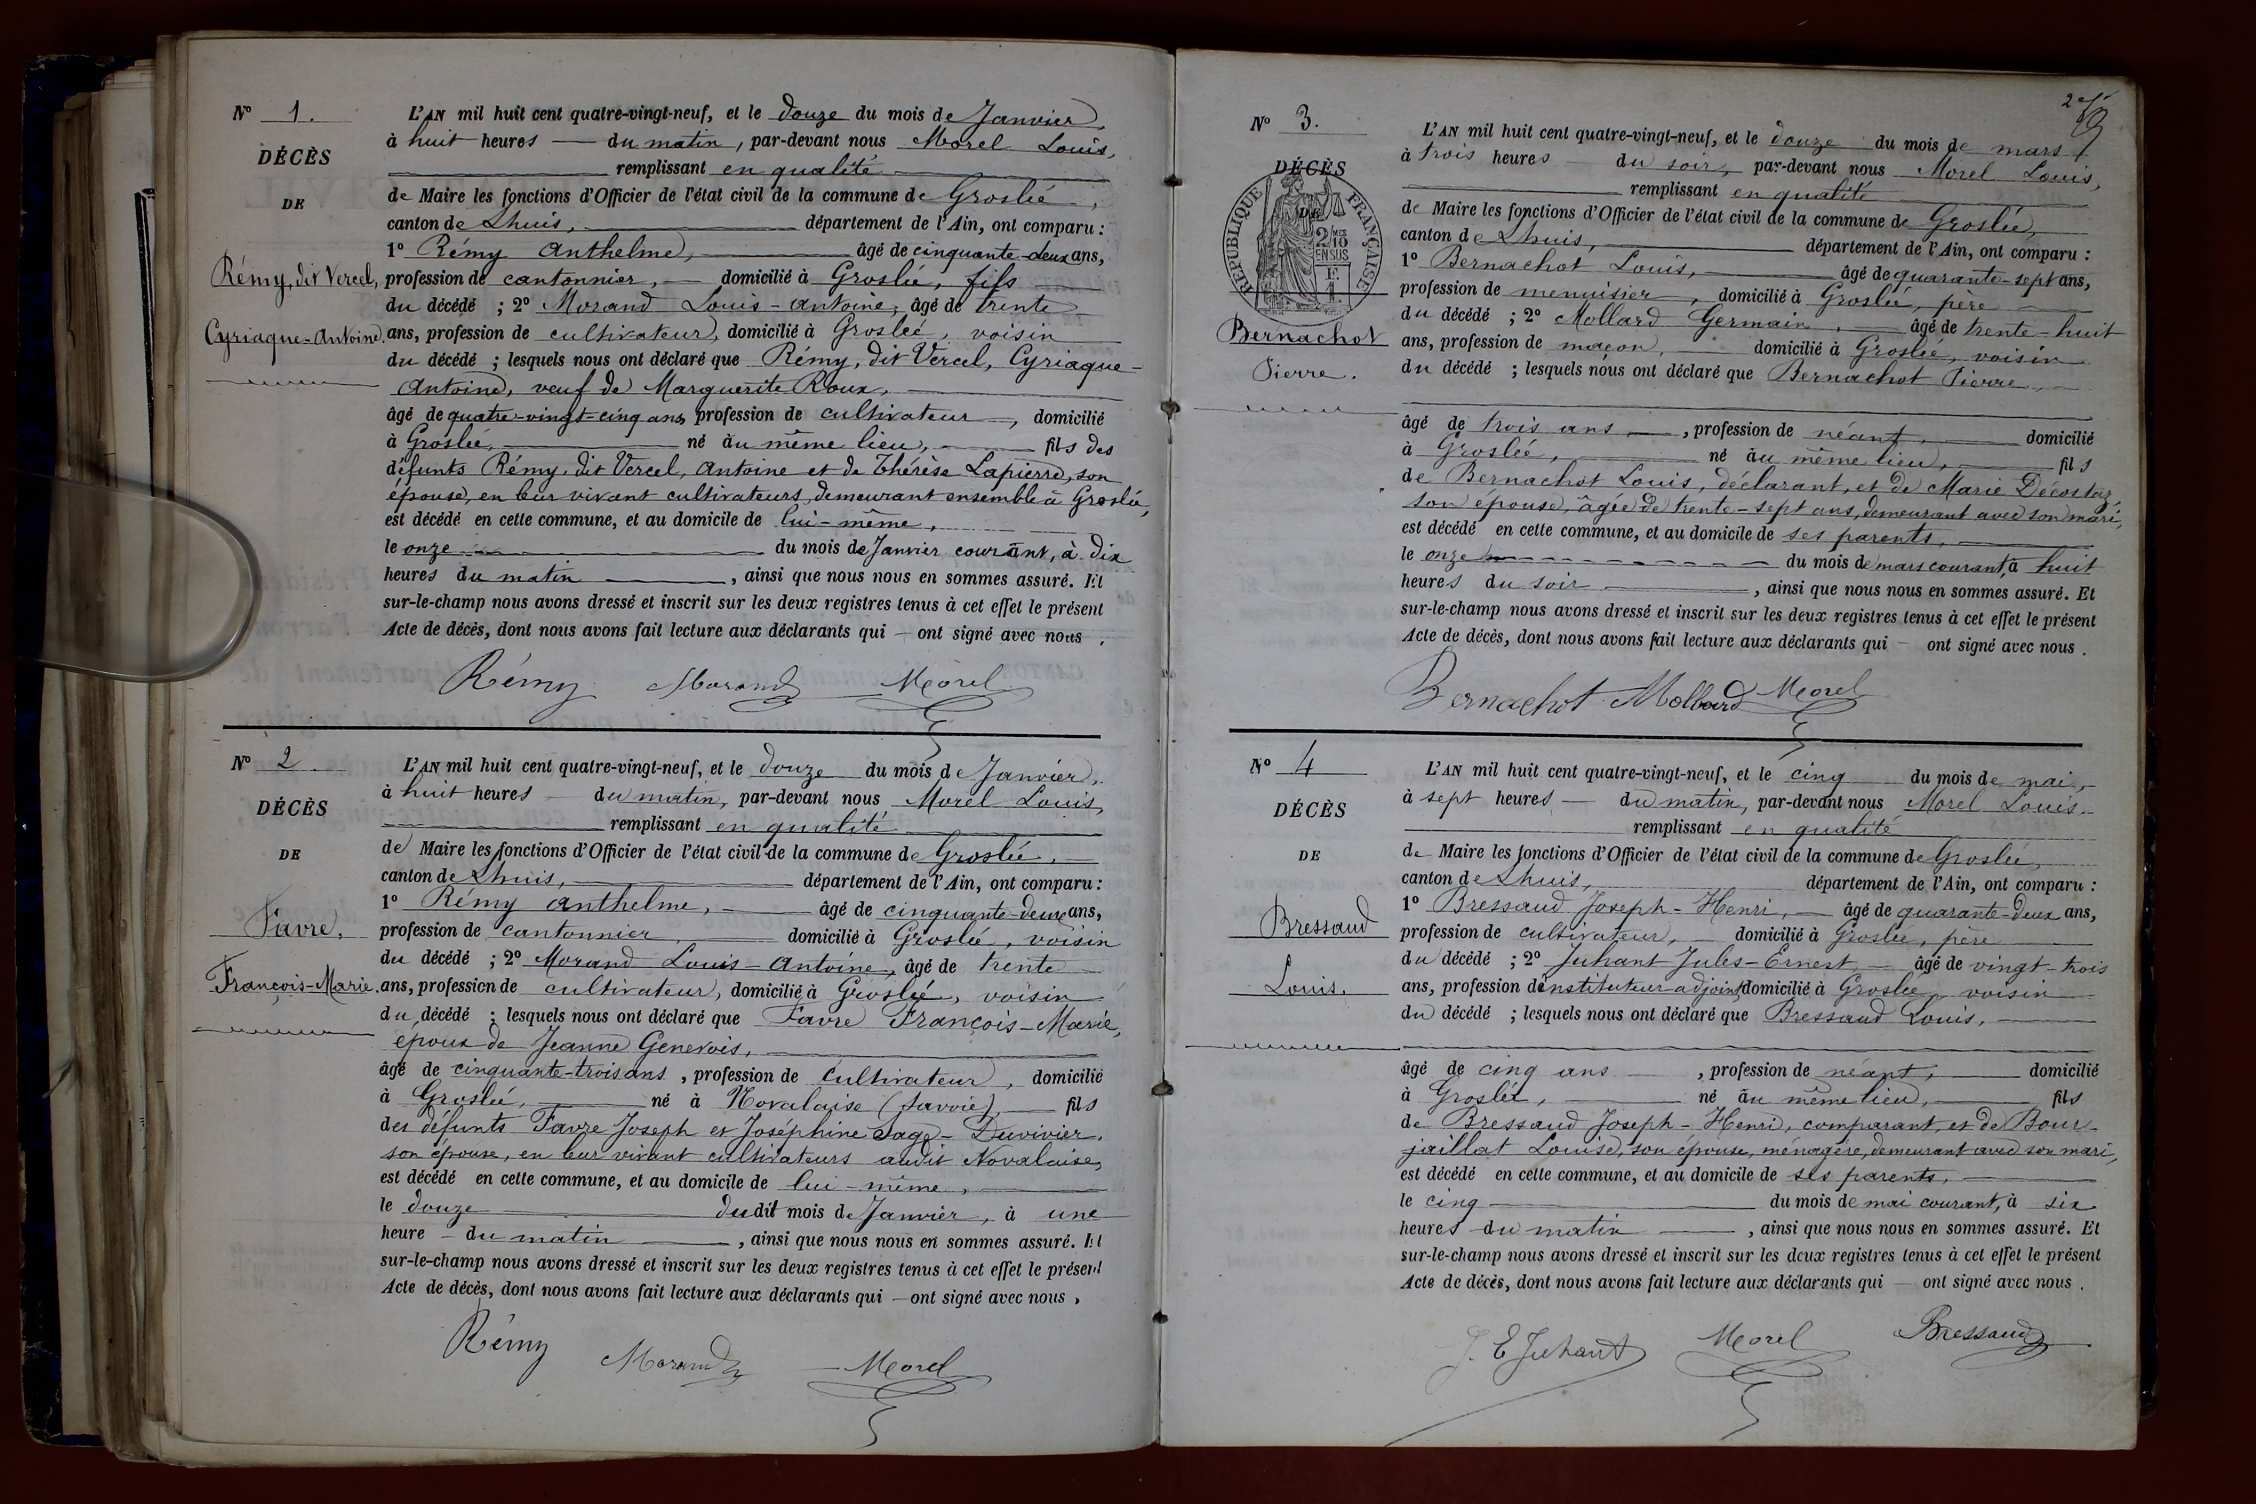 N° 1.
DÉCÈS
DE
Rémy, dit Vercel,
Cyriaque-Antoine.
L'AN mil huit cent quatre-vingt-neuf, et le douze du mois de Janvier,
à huit heures du matin, par-devant nous Morel Louis,
remplissant en qualité
de Maire les fonctions d'Officier de l'état civil de la commune de Groslée,
canton de Lhuis, département de l'Ain, ont comparu :
1° Rémy Anthelme, âgé de cinquante-deux ans,
profession de cantonnier, domicilié à Groslée, fils
du décédé ; 2° Morand Louis-Antoine, âgé de trente
ans, profession de cultivateur, domicilié à Groslée, voisin
du décédé ; lesquels nous ont déclaré que Rémy, dit Vercel, Cyriaque-
Antoine, veuf de Marguerite Roux,
âgé de quatre-vingt-cinq ans, profession de cultivateur, domicilié
à Groslée, né au même lieu, fils des
défunts Rémy, dit Vercel, Antoine et de Thérèse Lapierre, son
épouse, en leur vivant cultivateurs, demeurant ensemble à Groslée,
est décédé en cette commune, et au domicile de lui-même,
le onze du mois de Janvier courant, à dix
heures du matin, ainsi que nous nous en sommes assuré. Et
sur-le-champ nous avons dressé et inscrit sur les deux registres tenus à cet effet le présent
Acte de décès, dont nous avons fait lecture aux déclarants qui — ont signé avec nous.
Rémy Morand Morel
N° 2.
DÉCÈS
DE
Favre,
François-Marie.
L'AN mil huit cent quatre-vingt-neuf, et le douze du mois de Janvier,
à huit heures du matin, par-devant nous Morel Louis,
remplissant en qualité
de Maire les fonctions d'Officier de l'état civil de la commune de Groslée,
canton de Lhuis, département de l'Ain, ont comparu :
1° Rémy Anthelme, âgé de cinquante-deux ans,
profession de cantonnier, domicilié à Groslée, voisin
du décédé ; 2° Morand Louis-Antoine, âgé de trente
ans, profession de cultivateur, domicilié à Groslée, voisin
du décédé ; lesquels nous ont déclaré que Favre François-Marie,
époux de Jeanne Genevois,
âgé de cinquante-trois ans, profession de cultivateur, domicilié
à Groslée, né à Novalaise (Savoie), fils
des défunts Favre Joseph et Joséphine Sage-Duvivier,
son épouse, en leur vivant cultivateurs audit Novalaise,
est décédé en cette commune, et au domicile de lui-même,
le douze dudit mois de Janvier, à une
heure du matin, ainsi que nous nous en sommes assuré. Et
sur-le-champ nous avons dressé et inscrit sur les deux registres tenus à cet effet le présent
Acte de décès, dont nous avons fait lecture aux déclarants qui — ont signé avec nous,
Rémy Morand Morel
N° 3.
DÉCÈS
DE
RÉPUBLIQUE FRANÇAISE
2/10
EN SUS
Bernachot
Pierre.
L'AN mil huit cent quatre-vingt-neuf, et le douze du mois de mars,
à trois heures du soir, par-devant nous Morel Louis,
remplissant en qualité
de Maire les fonctions d'Officier de l'état civil de la commune de Groslée,
canton de Lhuis, département de l'Ain, ont comparu :
1° Bernachot Louis, âgé de quarante-sept ans,
profession de menuisier, domicilié à Groslée, père
du décédé ; 2° Mollard Germain, âgé de trente-huit
ans, profession de maçon, domicilié à Groslée, voisin
du décédé ; lesquels nous ont déclaré que Bernachot Pierre,
âgé de trois ans, profession de néant, domicilié
à Groslée, né au même lieu, fils
de Bernachot Louis, déclarant, et de Marie Décostaz,
son épouse, âgée de trente-sept ans, demeurant avec son mari,
est décédé en cette commune, et au domicile de ses parents,
le onze du mois de mars courant, à huit
heures du soir, ainsi que nous nous en sommes assuré. Et
sur-le-champ nous avons dressé et inscrit sur les deux registres tenus à cet effet le présent
Acte de décès, dont nous avons fait lecture aux déclarants qui — ont signé avec nous.
Bernachot Mollard Morel
N° 4
DÉCÈS
DE
Bressaud
Louis.
L'AN mil huit cent quatre-vingt-neuf, et le cinq du mois de mai,
à sept heures — du matin, par-devant nous Morel Louis
remplissant en qualité
de Maire les fonctions d'Officier de l'état civil de la commune de Groslée,
canton de Lhuis, département de l'Ain, ont comparu :
1° Bressaud Joseph-Henri, âgé de quarante-deux ans,
profession de cultivateur, domicilié à Groslée, père
du décédé ; 2° Juhant Jules-Ernest âgé de vingt-trois
ans, profession d'instituteur adjoint, domicilié à Groslée voisin
du décédé ; lesquels nous ont déclaré que Bressaud Louis,
âgé de cinq ans, profession de néant, domicilié
à Groslée, né au même lieu, fils
de Bressaud Joseph-Henri, comparant, et de Bour-
jaillat Louise, son épouse, ménagère, demeurant avec son mari,
est décédé en cette commune, et au domicile de ses parents,
le cinq du mois de mai courant, à six
heures du matin, ainsi que nous nous en sommes assuré. Et
sur-le-champ nous avons dressé et inscrit sur les deux registres tenus à cet effet le présent
Acte de décès, dont nous avons fait lecture aux déclarants qui — ont signé avec nous.
J. E Juhant Morel Bressaud